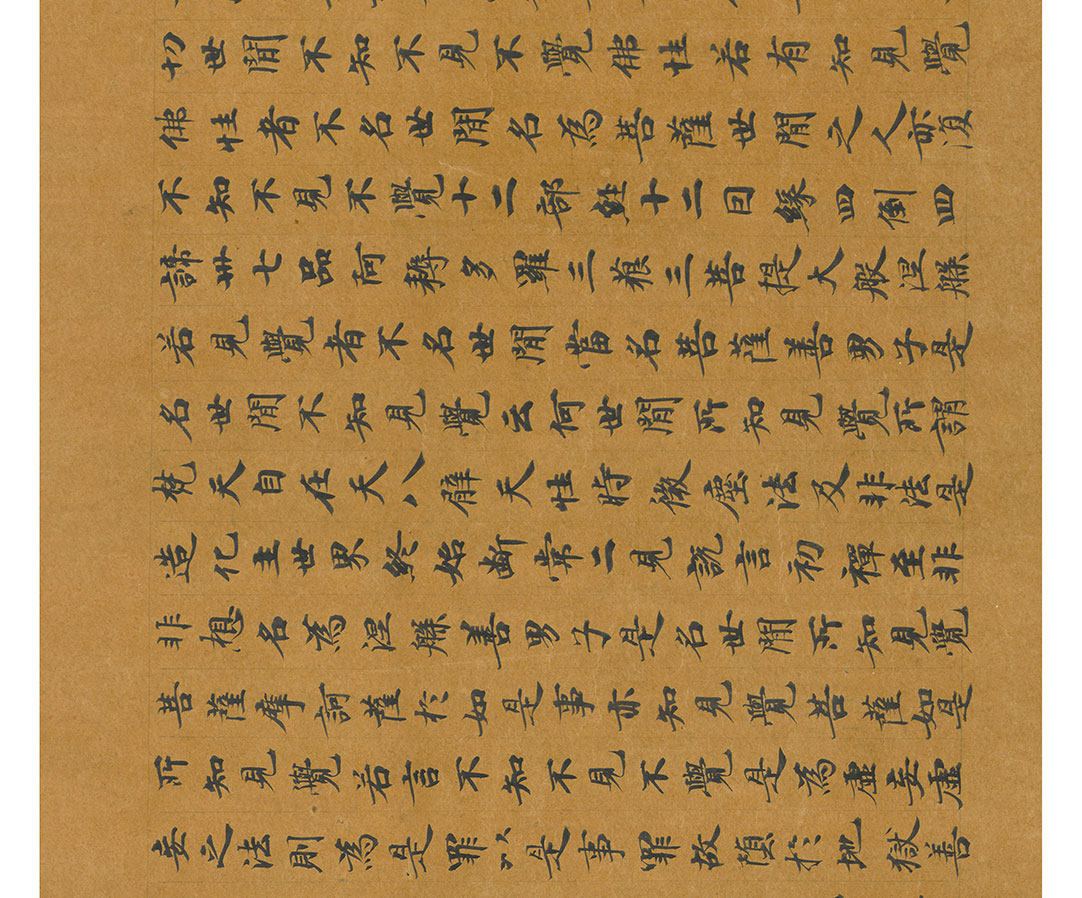 切世間不知不見不覺佛性若有知見覺
佛性者不名世間名為菩薩世間之人亦復
不知不見不覺十二部經十二因緣四倒四
諦卅七品阿耨多羅三藐三菩提大般涅槃
若見覺者不名世間當名菩薩善男子是
名世間不知見覺云何世間所知見覺所謂
梵天自在天八臂天性時微塵法及非法是
造化主世界終始斷常二見說言初禪至非
非想名為涅槃善男子是名世間所知見覺
菩薩摩訶薩於如是事亦知見覺菩薩如是
所知見覺若言不知不見不覺是為虛妄虛
妄之法則為是罪以是事罪故墮於地獄善